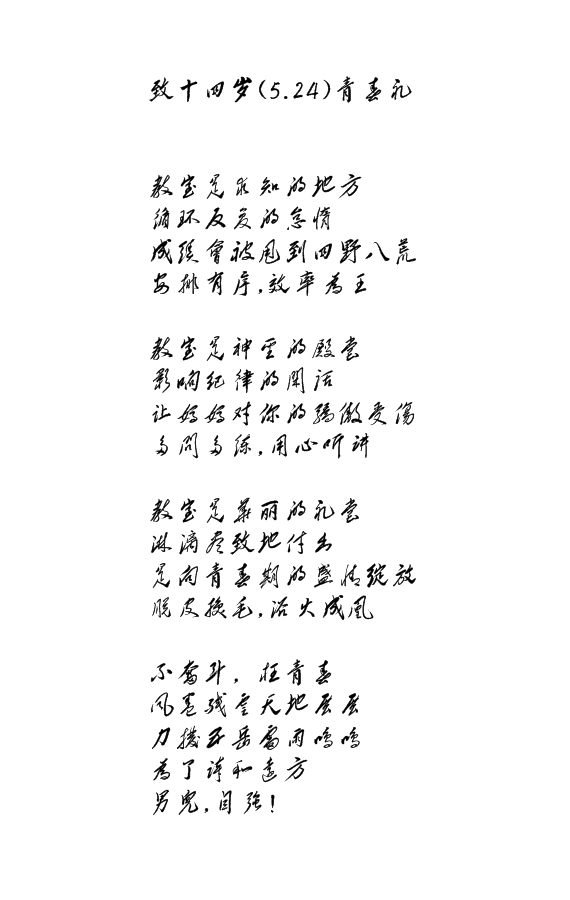 致十四岁(5.24)青春礼
教室是求知的地方
循环反复的怠惰
成绩會被甩到四野八荒
安排有序,效率為王
教室是神圣的殿堂
影响纪律的閑话
让妈妈对你的骄傲受傷
多問多练,用心听讲
教室是華丽的礼堂
淋漓尽致地付出
是向青春期的盛情绽放
脱皮换毛,浴火成凰
不奮斗, 枉青春
风卷残雲天地
力拔五岳雷雨鳴鳴
為了诗和遠方
男兒,自强!